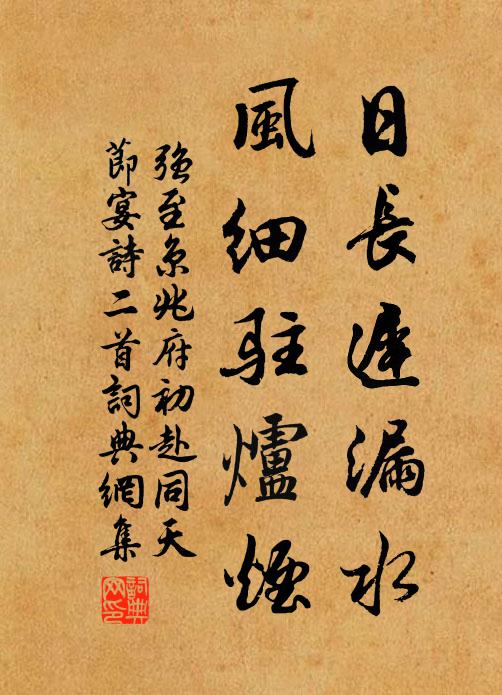 日長遲漏水
風細駐爐煙
強至京兆府初赴同天
節宴詩二首詞典網集
詞典
网印